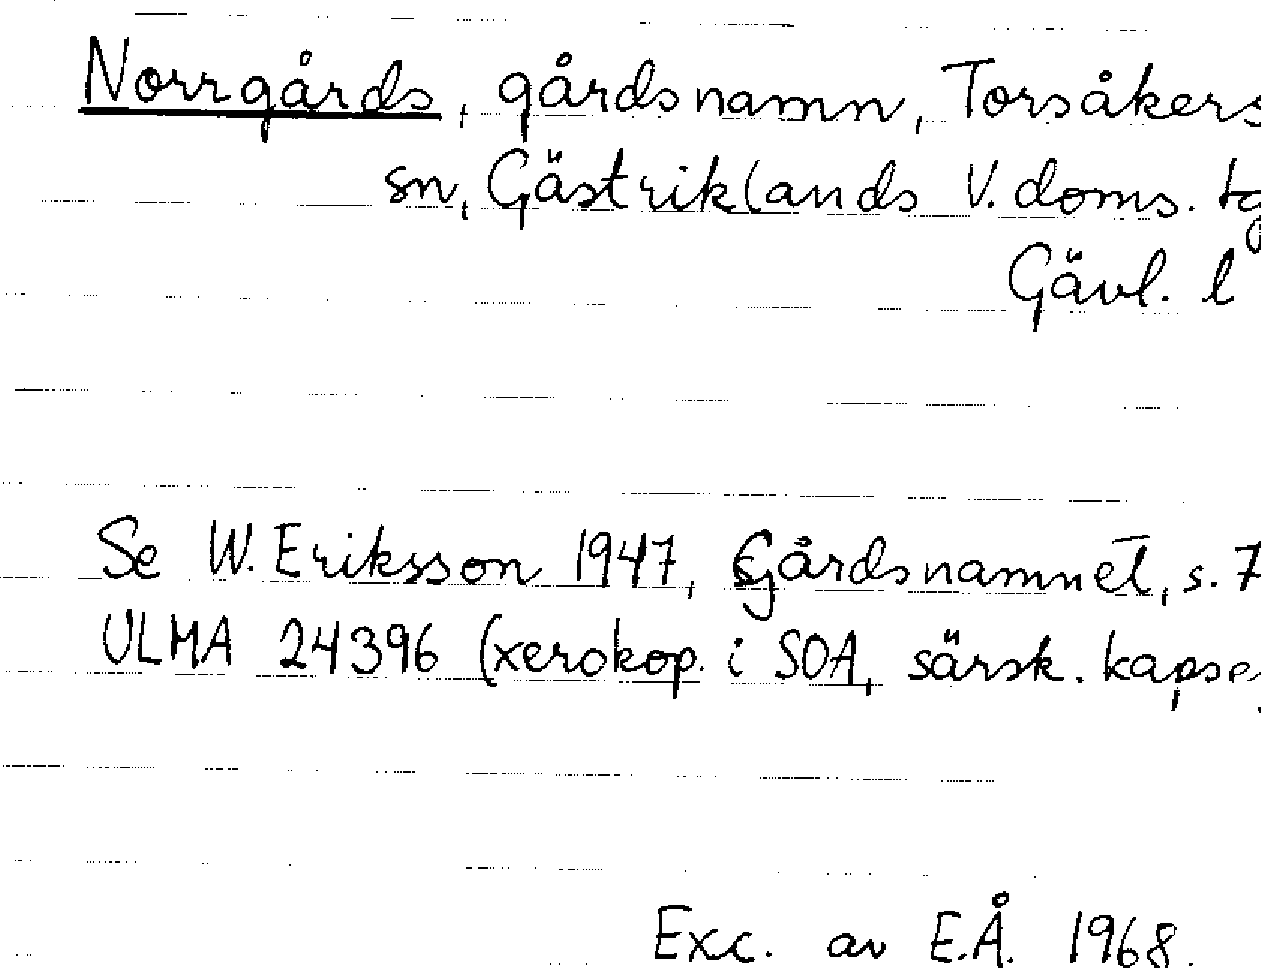 Norrgårds, gårdsnamn, Torsåkers
sn, Gästriklands V. doms. tg
Gävl. l
Se W. Eriksson 1947, Gårdsnamnet, s. 7
ULMA 24396 (xerokop. i SOA, särsk. kapse
Exc. av E.Å. 1968.